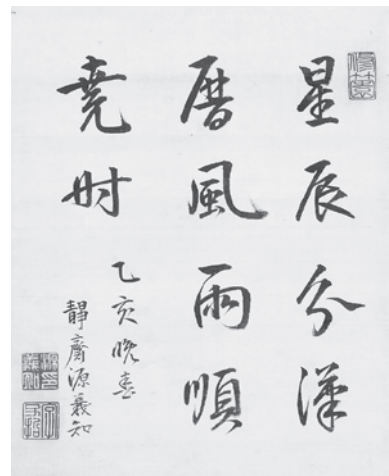 星辰分漢
曆風雨順
堯時
乙亥晚春
靜齋源義知